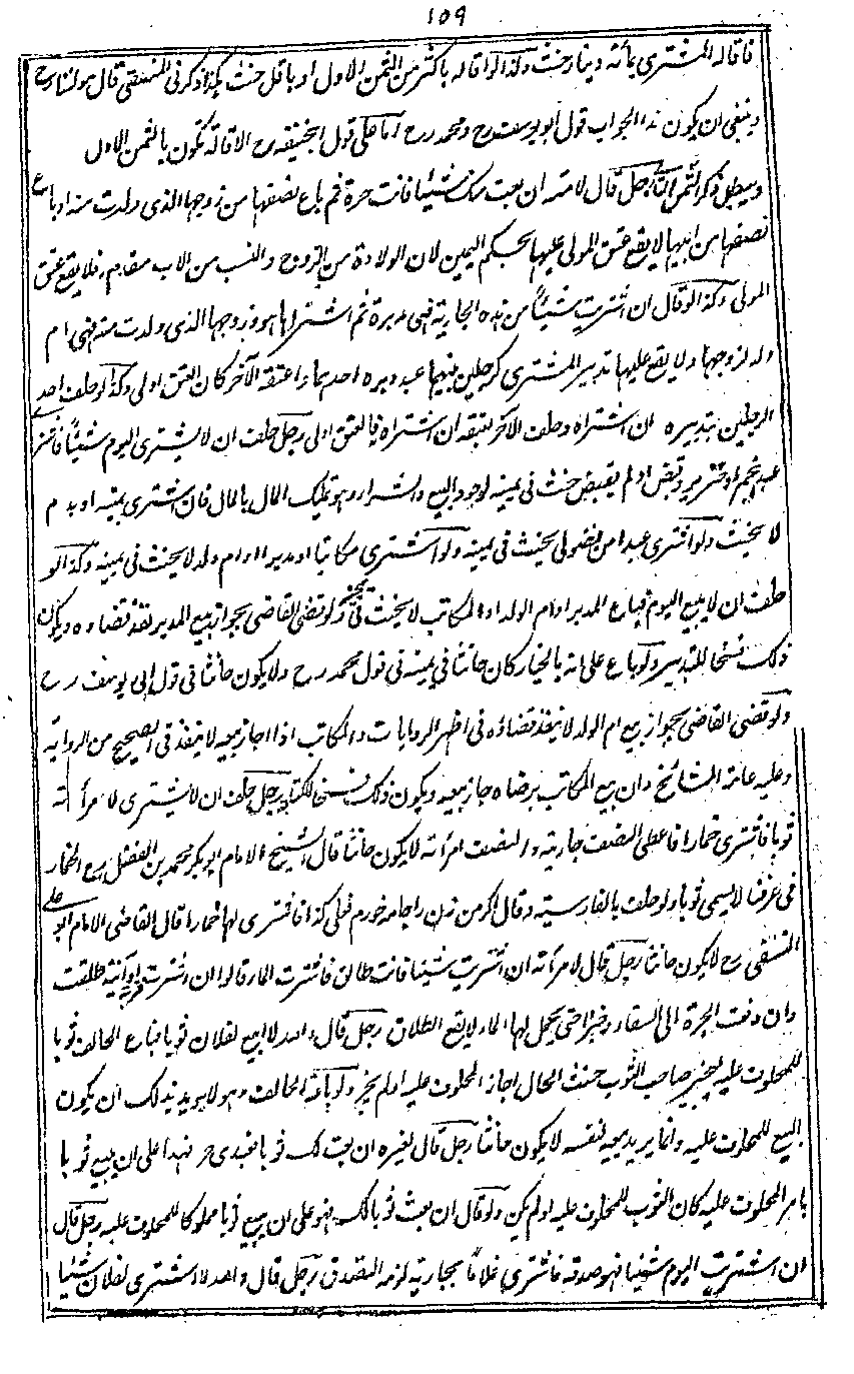 ١٥٩
فاقاله المشترى بمأته دينار حنث وكذا لو اقاله باكثر من الثمن الاول او باقل حنث هكذا ذكر فى المنتقى قال مولانا رح
وينبغى ان يكون هذا الجواب قول ابويوسف رح ومحمد رح اما على قول ابيحنيفة رح الاقالة تكون بالثمن الاول
ويبطل ذكر الثمن الثانى رجل قال لامته ان بعت منك شيئا فانت حرة ثم باع نصفها من زوجها الذى ولدت منه او باع
نصفها من ابيها لا يقع عتق المولى عليها بحكم اليمين لان الولادة من الزوج والنسب من الاب مقدم فلا يقع عتق
المولى وكذا لو قال ان اشتريت شيئا من هذه الجارية فهى مدبرة ثم اشتراها هو وزوجها الذى ولدت منه فهى ام
ولد لزوجها ولا يقع عليها تدبير المشترى كرجلين بينهما عبد دبره احدهما واعتقه الآخر كان العتق اولى وكذا لو حلف احد
الرجلين بتدبيره ان اشتراه وحلف الآخر بعتقه ان اشتراه فالعتق اولى رجل حلف ان لا يشترى اليوم شيئا فاشترى
عبدا بخمر او خنزير وقبض او لم يقبض حنث فى يمينه لوجود البيع والشراء وهو تمليك المال بالمال فان اشترى بميتة او بدم
لا يحنث ولو اشترى عبدا من فضولى يحنث فى يمينه ولو اشترى مكاتبا او مدبرا او ام ولد لا يحنث فى يمينه وكذا لو
حلف ان لا يبيع اليوم فباع المدبر او ام الولد او المكاتب لا يحنث فى يمينه ولو قضى القاضى بجواز بيع المدبر نفذ قضاءه ويكون
ذلك فسخا للتدبير ولو باع على انه بالخيار كان حانثا فى يمينه فى قول محمد رح ولا يكون حانثا فى قول ابى يوسف رح
ولو قضى القاضى بجواز بيع ام الولد لا ينفذ قضاؤه فى اظهر الروايات والمكاتب اذا اجاز بيعه لا ينفذ فى الصحيح من الرواية
وعليه عامة المشائخ وان بيع المكاتب برضاه جاز بيعه ويكون ذلك فسخا للكتابة رجل حلف ان لا يشترى لامرأته
ثوبا فاشترى خمارا فاعطى النصف جاريته والنصف امرأته لا يكون حانثا قال الشيخ الامام ابوبكر محمد بن الفضل رح الخمار
فى عرفنا لا يسمى ثوبا ولو حلف بالفارسية وقال اكر من زن را جامه خورم فعلى كذا فاشترى لها خمارا قال القاضى الامام ابو على
النسفى رح لا يكون حانثا رجل قال لامرأته ان اشتريت شيئا فانت طالق فاشترت الماء قالوا ان اشترت آنية طلقت
وان دفعت الجرة الى السقاء وخبزا حتى يحمل لها الماء لا يقع الطلاق رجل قال والله لا ابيع لفلان ثوبا فباع الحالف ثوبا
للمحلوف عليه ليجيز صاحب الثوب حنث الحال اجاز المحلوف عليه او لم يجز ولو باعه الحالف وهو لا يريد بذلك ان يكون
البيع للمحلوف عليه وانما يريد بيعه لنفسه لا يكون حانثا رجل قال لغيره ان بعت لك ثوبا فعبدى حر فهذا على ان يبيع ثوبا
بامر المحلوف عليه كان الثوب للمحلوف عليه او لم يكن ولو قال ان بعت ثوبا لك فهو على ان يبيع ثوبا مملوكا للمحلوف عليه رجل قال
ان اشتريت اليوم شيئا فهو صدقة فاشترى غلاما بجارية لزمه التصدق رجل قال والله لا اشترى لفلان شيئا